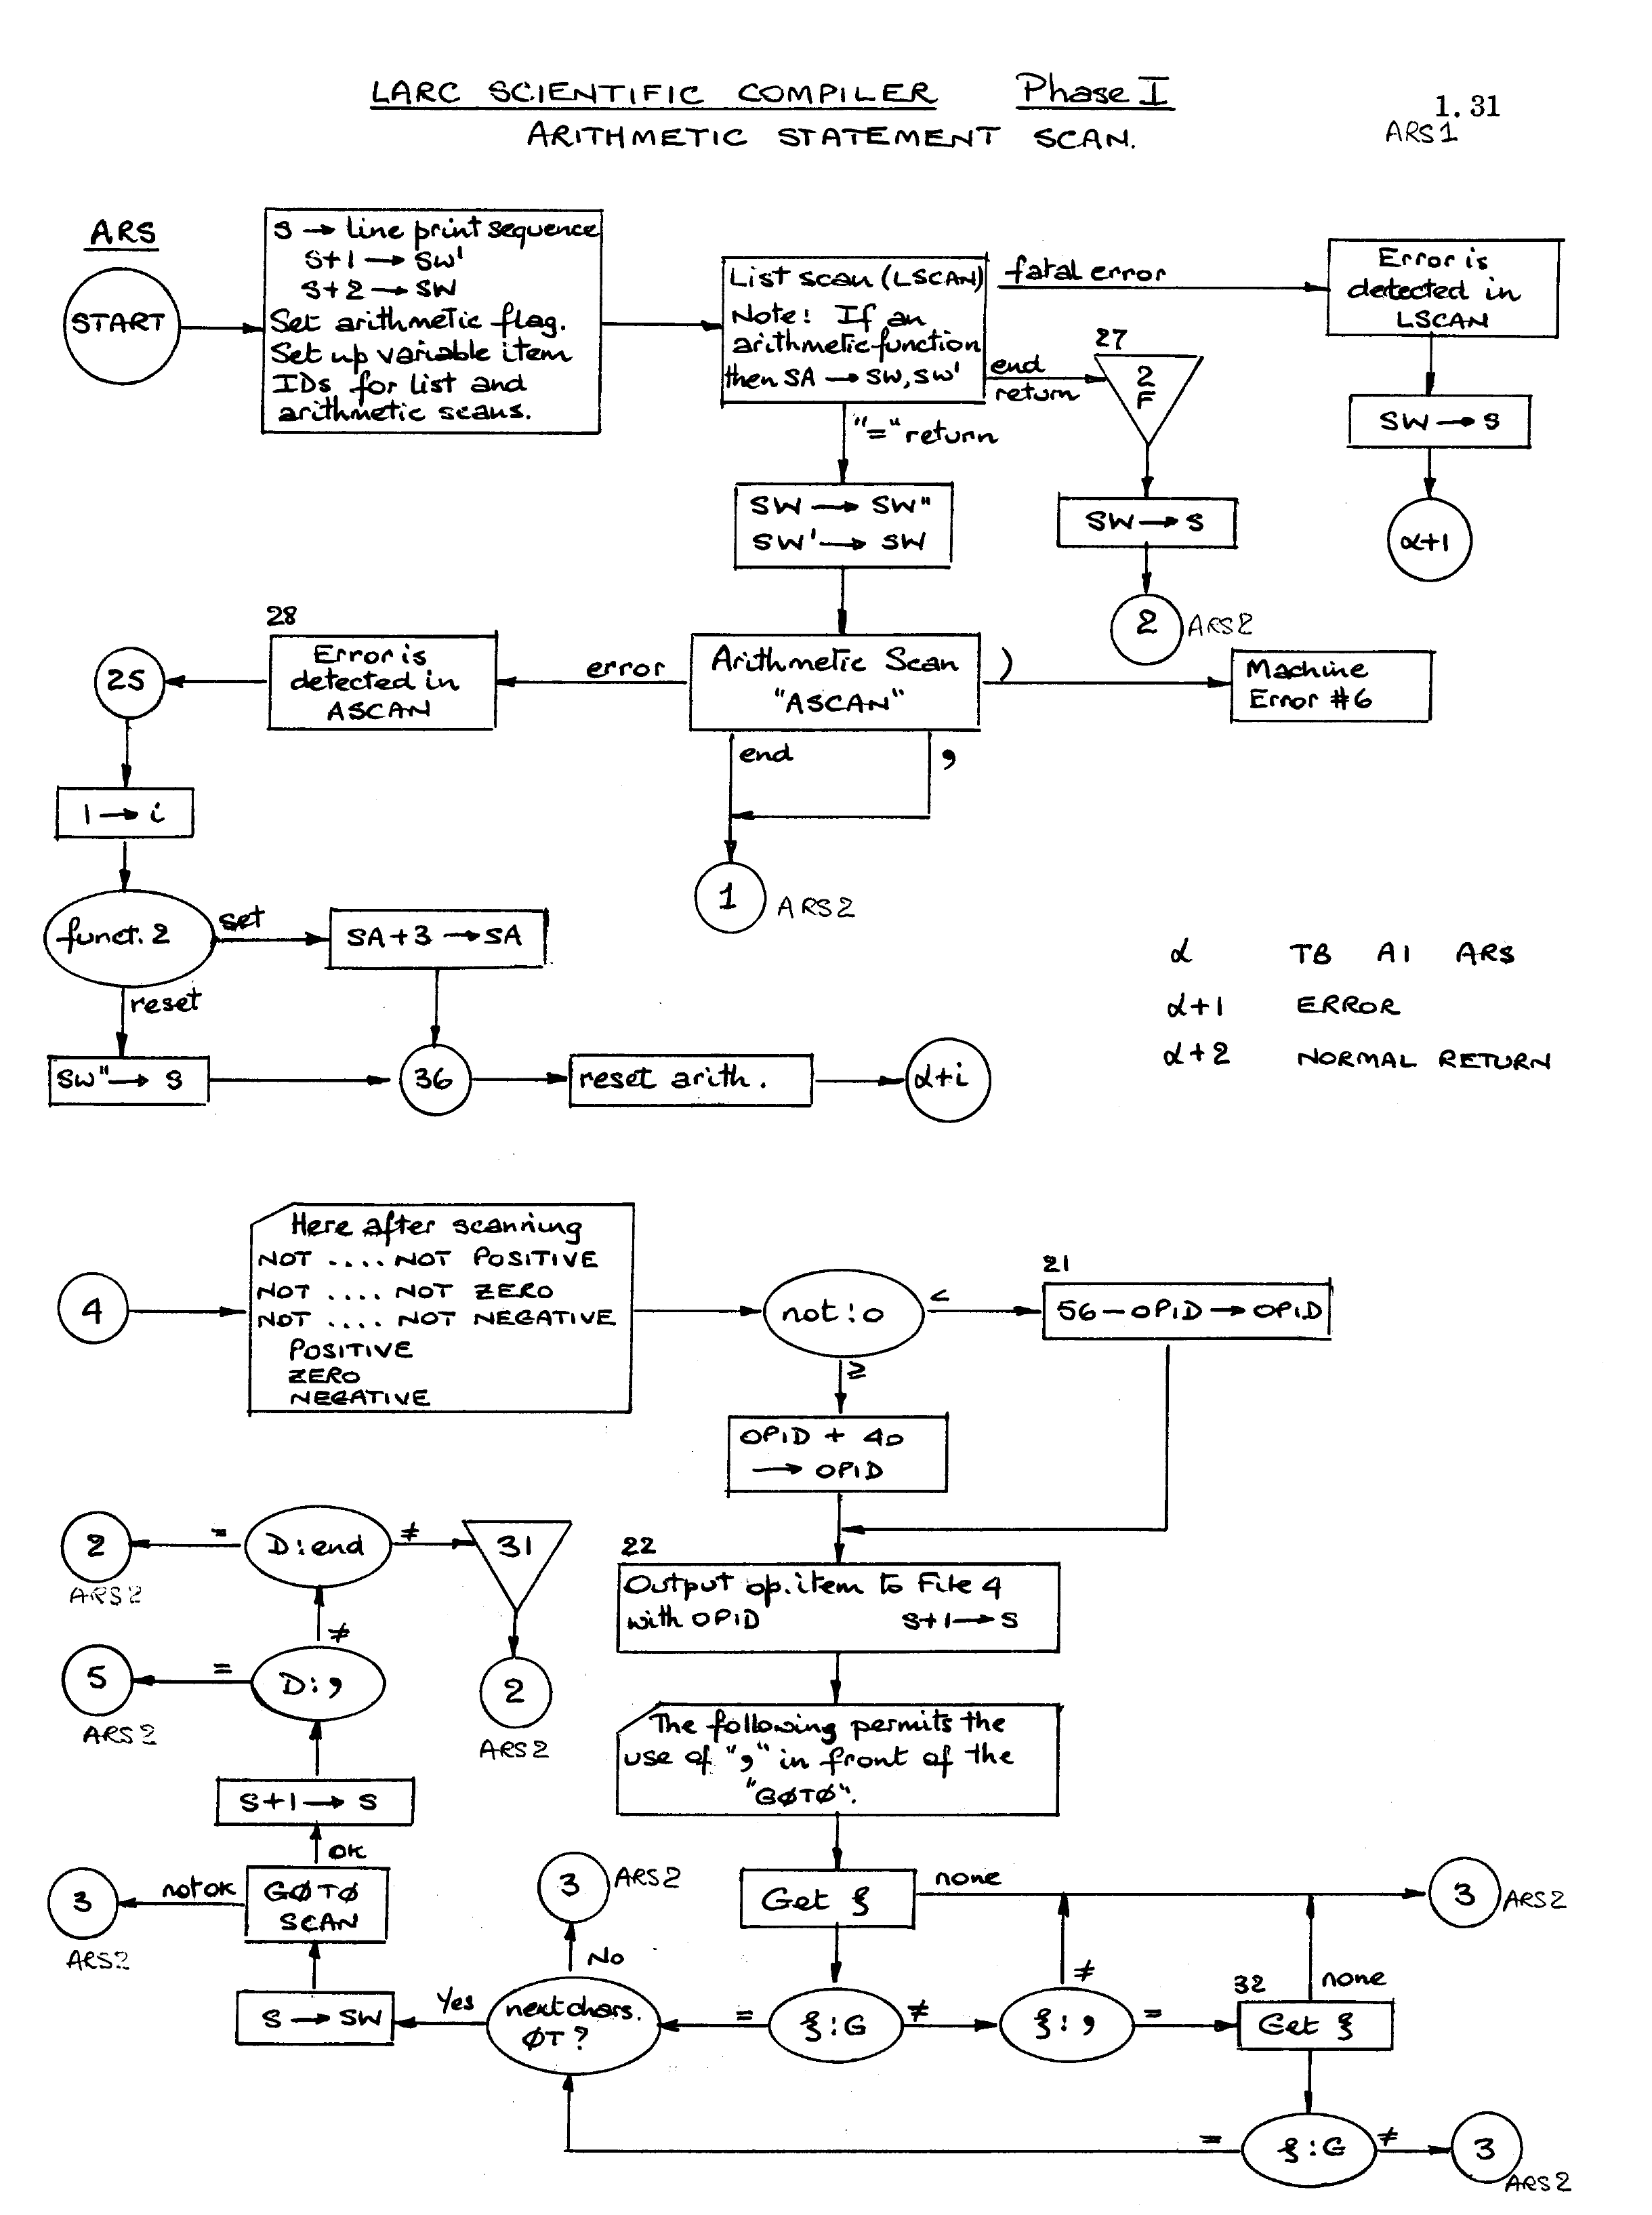 LARC SCIENTIFIC COMPILER Phase I
1.31
ARITHMETIC STATEMENT SCAN.
ARS1
ARS
START
s → line print sequence
s+1 → sw'
s+2 → sw
Set arithmetic flag.
Set up variable item
IDs for list and
arithmetic scans.
List scan (LSCAN)
Note! If an
arithmetic function
then SA → sw, sw'
fatal error
Error is
detected in
LSCAN
SW → s
α+1
end
return
27
2
F
SW → s
2
ARS2
"=" return
SW → SW"
SW' → SW
Arithmetic Scan
"ASCAN"
)
Machine
Error #6
error
28
Error is
detected in
ASCAN
25
end
,
1
ARS2
1 → i
funct. 2
set
SA+3 → SA
reset
SW" → s
36
reset arith.
α+i
α TB A1 ARS
α+1 ERROR
α+2 NORMAL RETURN
4
Here after scanning
NOT .... NOT POSITIVE
NOT .... NOT ZERO
NOT .... NOT NEGATIVE
POSITIVE
ZERO
NEGATIVE
not : 0
<
21
56 - OPID → OPID
≥
OPID + 40
→ OPID
22
Output op. item to File 4
with OPID s+1 → s
The following permits the
use of "," in front of the
"GØTØ".
Get ξ
none
3
ARS2
ξ : G
≠
ξ : ,
≠
=
32
Get ξ
none
ξ : G
≠
3
ARS2
=
=
next chars.
ØT ?
No
3
ARS2
Yes
S → SW
GØTØ
SCAN
not ok
3
ARS2
OK
S+1 → S
D : ,
=
5
ARS2
≠
D : end
=
2
ARS2
≠
31
2
ARS2